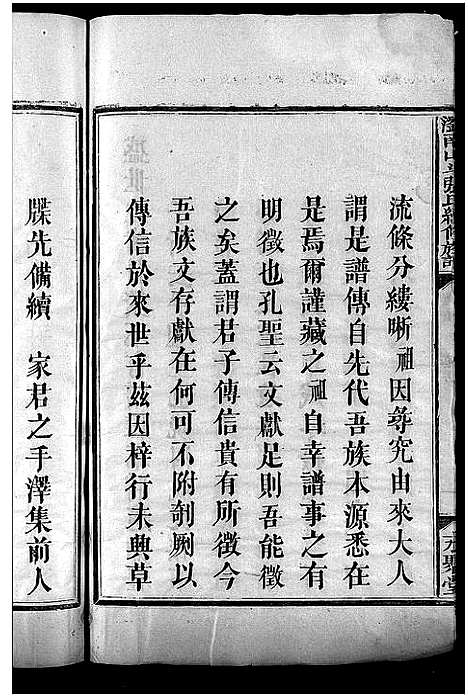 流條分縷晰祖因尋究由來大人
謂是譜傳自先代吾族本源悉在
是焉爾謹藏之祖自幸譜事之有
明徵也孔聖云文獻足則吾能徵
之矣蓋謂君子傳信貴有所徵今
吾族文存獻在何可不附剞劂以
傳信於來世乎茲因梓行未興草
牒先備續　家君之手澤集前人